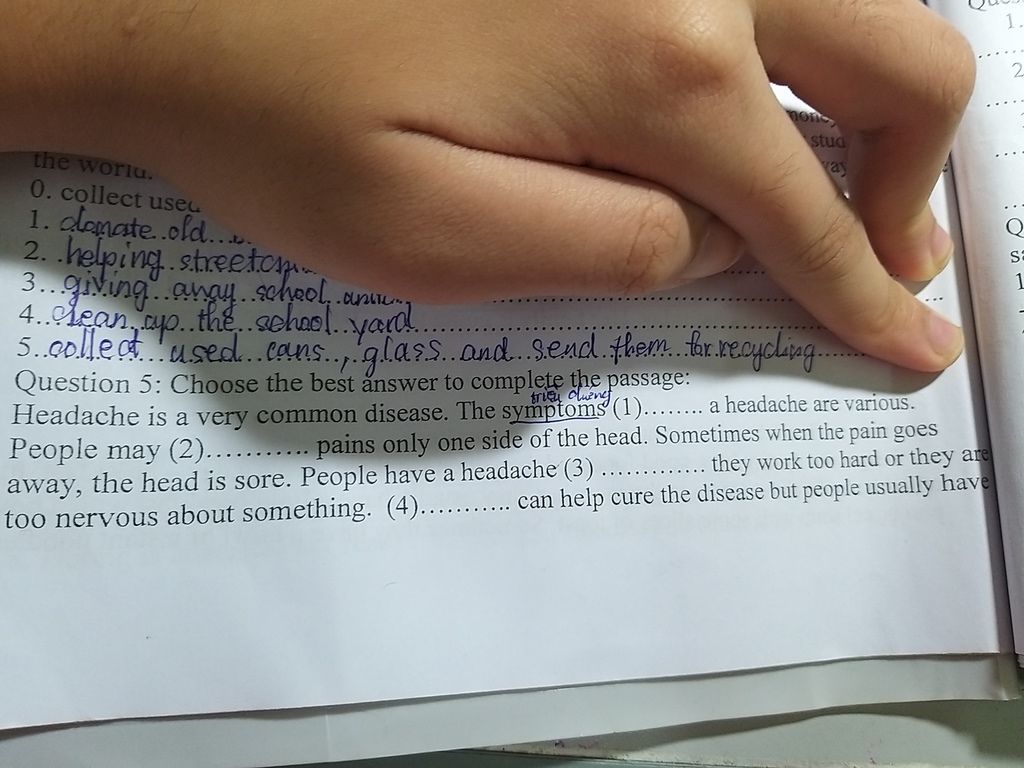 Ques
1.
2
money
stud
way
the world.
0. collect used
1. donate old
2. helping
3. giving away school
4. clean up the school yard
5. collect used cans, glass and send them for recycling
Question 5: Choose the best answer to complete the passage:
triệu chứng
Headache is a very common disease. The symptoms (1)........ a headache are various.
People may (2)............ pains only one side of the head. Sometimes when the pain goes
away, the head is sore. People have a headache (3) ............. they work too hard or they are
too nervous about something. (4)........... can help cure the disease but people usually have
Q
1